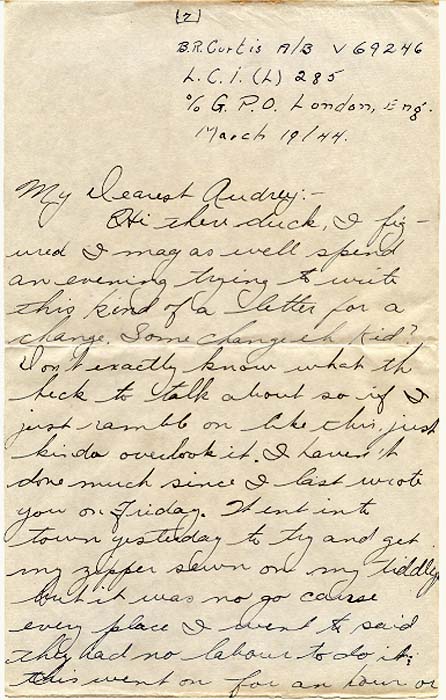 (7)
B.R. Curtis A/B V 69246
L.C.I. (L) 285
℅ G.P.O. London, Eng.
March 19/44.
My Dearest Audrey:-
Hi there duck, I fig-
ured I may as well spend
an evening trying to write
this kind of a letter for a
change. Some change eh kid?
Don't exactly know what th
heck to talk about so if I
just ramble on like this, just
kinda overlook it. I haven't
done much since I last wrote
you on Friday. Went into
town yesterday to try and get
my zipper sewn on my tiddly
but it was no go cause
every place I went to said
they had no labour to do it;
this went on for an hour or